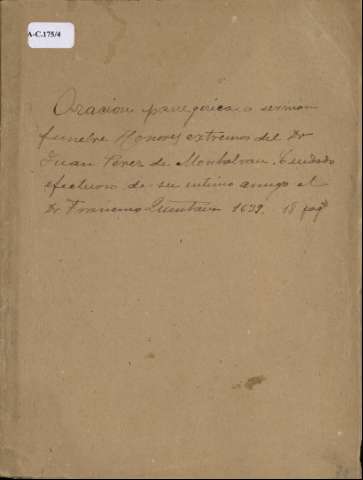 A-C.175/4
Oracion panegirica o sermon
funebre Honores extremos del Dr
Juan Perez de Montalvan. Cuidado
afectuoso de su intimo amigo el
Dr Francisco Quintana 1639. 18 pag.